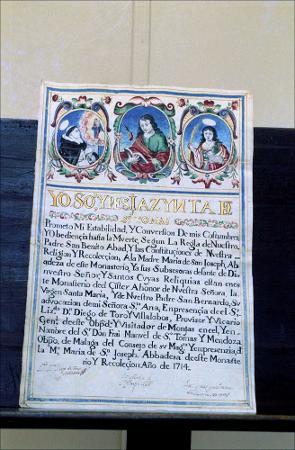 YO SOR Yª JAZYNTA E
Sto TOMAS
Prometo Mi Estabilidad, Y Conversion De mis Costumbres
YObediencia hasta la Muerte, Segun La Regla de Nuestro
Padre San Benito Abad, y las Constituciones de Nuestra
Religion y Recoleccion, A la Madre Maria de San Joseph, Aba
deza de este Monasterio, Ya sus Subsesoras delante de Dios
nuestro Señor, Y Santos Cuyas Reliquias estan en es
te Monasterio del Cister Ahonor de Nuestra Señora la
Virgen Santa Maria, Y de Nuestro Padre San Bernardo, Su
advocacion de mi Señora Stª Ana, En presencia de el
Lizdo Dn Diego de Toro Y Villalobos, Provisor Y Vicario
Genl de este Obpdo Y Visitador de Monjas en el, Yen
Nombre del Sr Don Frai Manvel de Sto Tomas Y Mendoza
Obpo de Malaga del Consejo de su Magd Yen presencia, d
la Me Maria de Sn Joseph Abbadesa de este Monaste
rio Y Recoleccion Año de 1714.